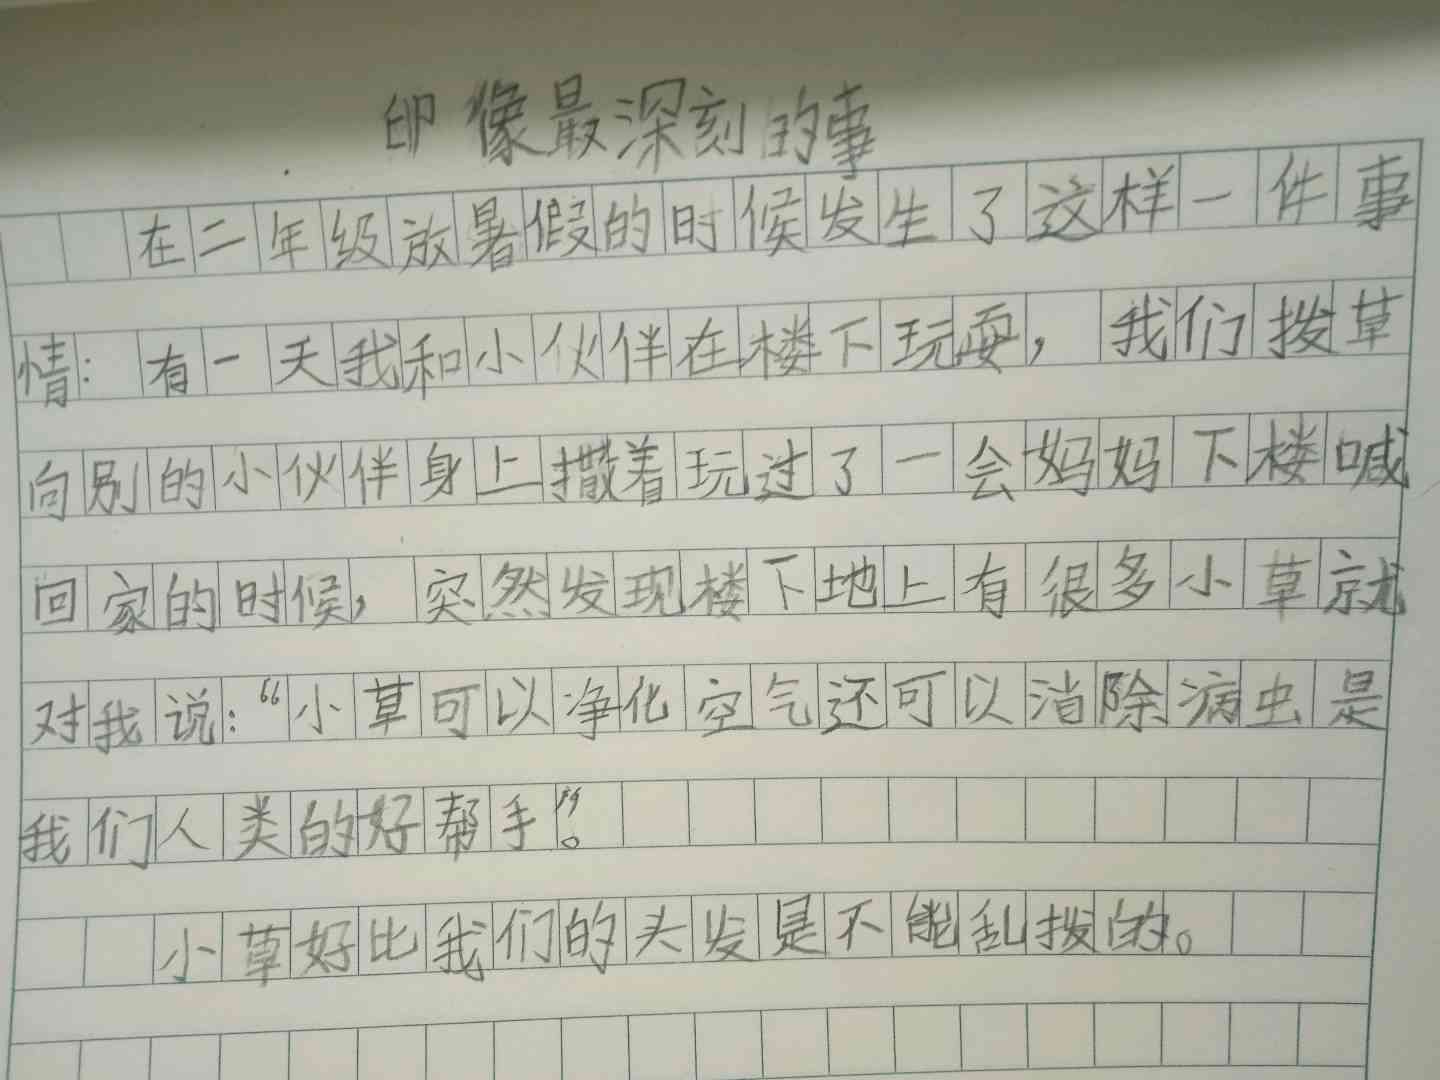 印像最深刻的事
在二年级放暑假的时候发生了这样一件事
情：有一天我和小伙伴在楼下玩耍，我们拨草
向别的小伙伴身上撒着玩过了一会妈妈下楼喊
回家的时候，突然发现楼下地上有很多小草就
对我说：“小草可以净化空气还可以消除病虫是
我们人类的好帮手”。
小草好比我们的头发是不能乱拨的。